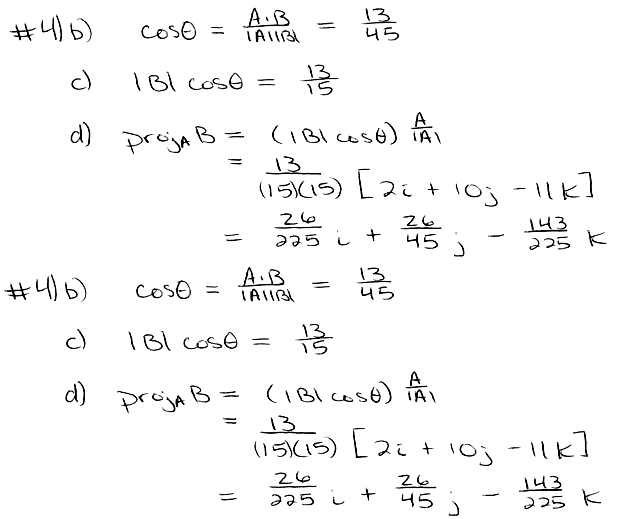 #4) b) cosθ = A·B / |A||B| = 13/45
c) |B| cosθ = 13/15
d) projA B = (|B| cosθ) A/|A|
= 13/(15)(15) [2i + 10j - 11k]
= 26/225 i + 26/45 j - 143/225 k
#4) b) cosθ = A·B / |A||B| = 13/45
c) |B| cosθ = 13/15
d) projA B = (|B| cosθ) A/|A|
= 13/(15)(15) [2i + 10j - 11k]
= 26/225 i + 26/45 j - 143/225 k